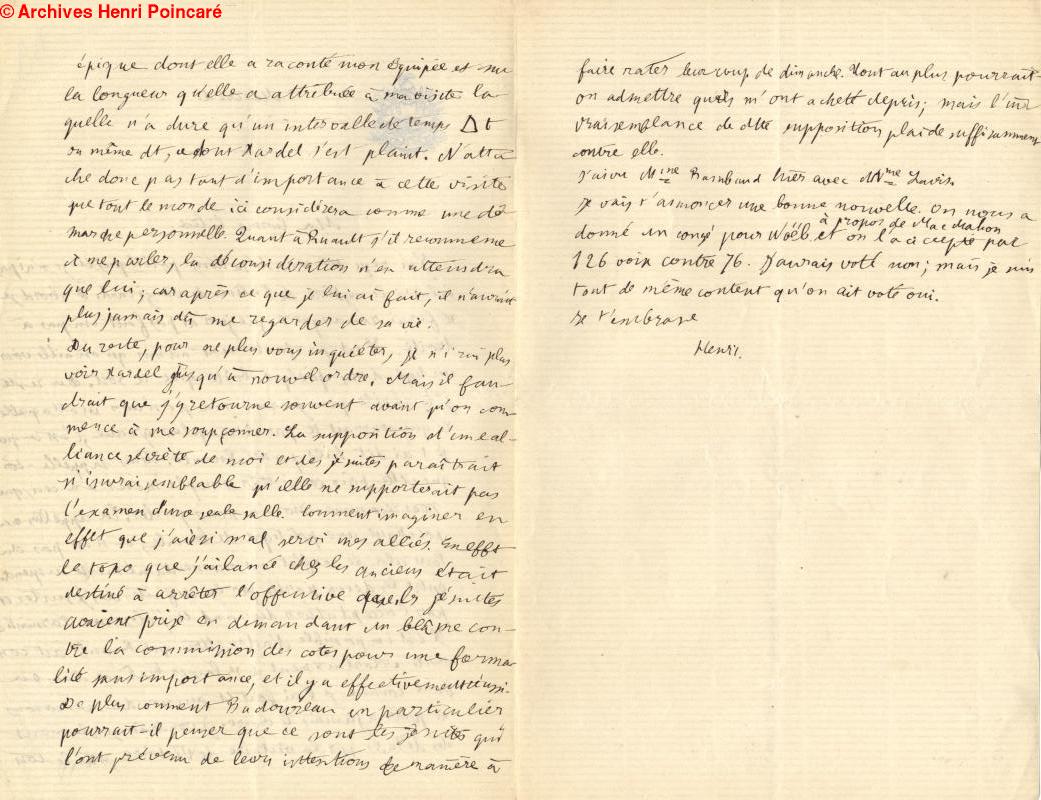 © Archives Henri Poincaré
épique dont elle a raconté mon équipée et sur
la longueur qu'elle a attribuée à ma visite la-
quelle n'a duré qu'un intervalle de temps Δt
ou même dt, ce dont Xardel s'est plaint. N'atta
che donc pas tant d'importance à cette visite
que tout le monde ici considérera comme une dé
marche personnelle. Quant à Ruault s'il recommence
à me parler, la déconsidération n'en atteindra
que lui; car après ce que je lui ai fait, il n'aurait
plus jamais dû me regarder de sa vie.
Du reste, pour ne plus vous inquiéter, je n'irai plus
voir Xardel jusqu'à nouvel ordre. Mais il fau-
drait que j'y retourne souvent avant qu'on com-
mence à me soupçonner. La supposition d'une al-
liance secrète de moi et des jésuites paraîtrait
si invraisemblable qu'elle ne supporterait pas
l'examen d'une seule salle. Comment imaginer en
effet que j'aie si mal servi mes alliés. En effet
le topo que j'ai lancé chez les anciens était
destiné à arrêter l'offensive que les jésuites
avaient prise en demandant un blâme con-
tre la commission des cotes pour une forma-
lité sans importance, et il y a effectivement réussi.
De plus comment Badoureau en particulier
pourrait-il penser que ce sont les jésuites qui
l'ont prévenu de leurs intentions de manière à
faire rater leur coup de dimanche. Tout au plus pourrait-
on admettre qu'ils m'ont acheté depuis; mais l'in
vraisemblance de cette supposition plaide suffisamment
contre elle.
J'ai vu Mme Rambaud hier avec Mme Lavis.
Je vais t'annoncer une bonne nouvelle. On nous a
à propos de Mac Mahon
donné un congé pour Noël et on l'a accepté par
126 voix contre 76. J'aurais voté non; mais je suis
tout de même content qu'on ait voté oui.
Je t'embrasse
Henri.